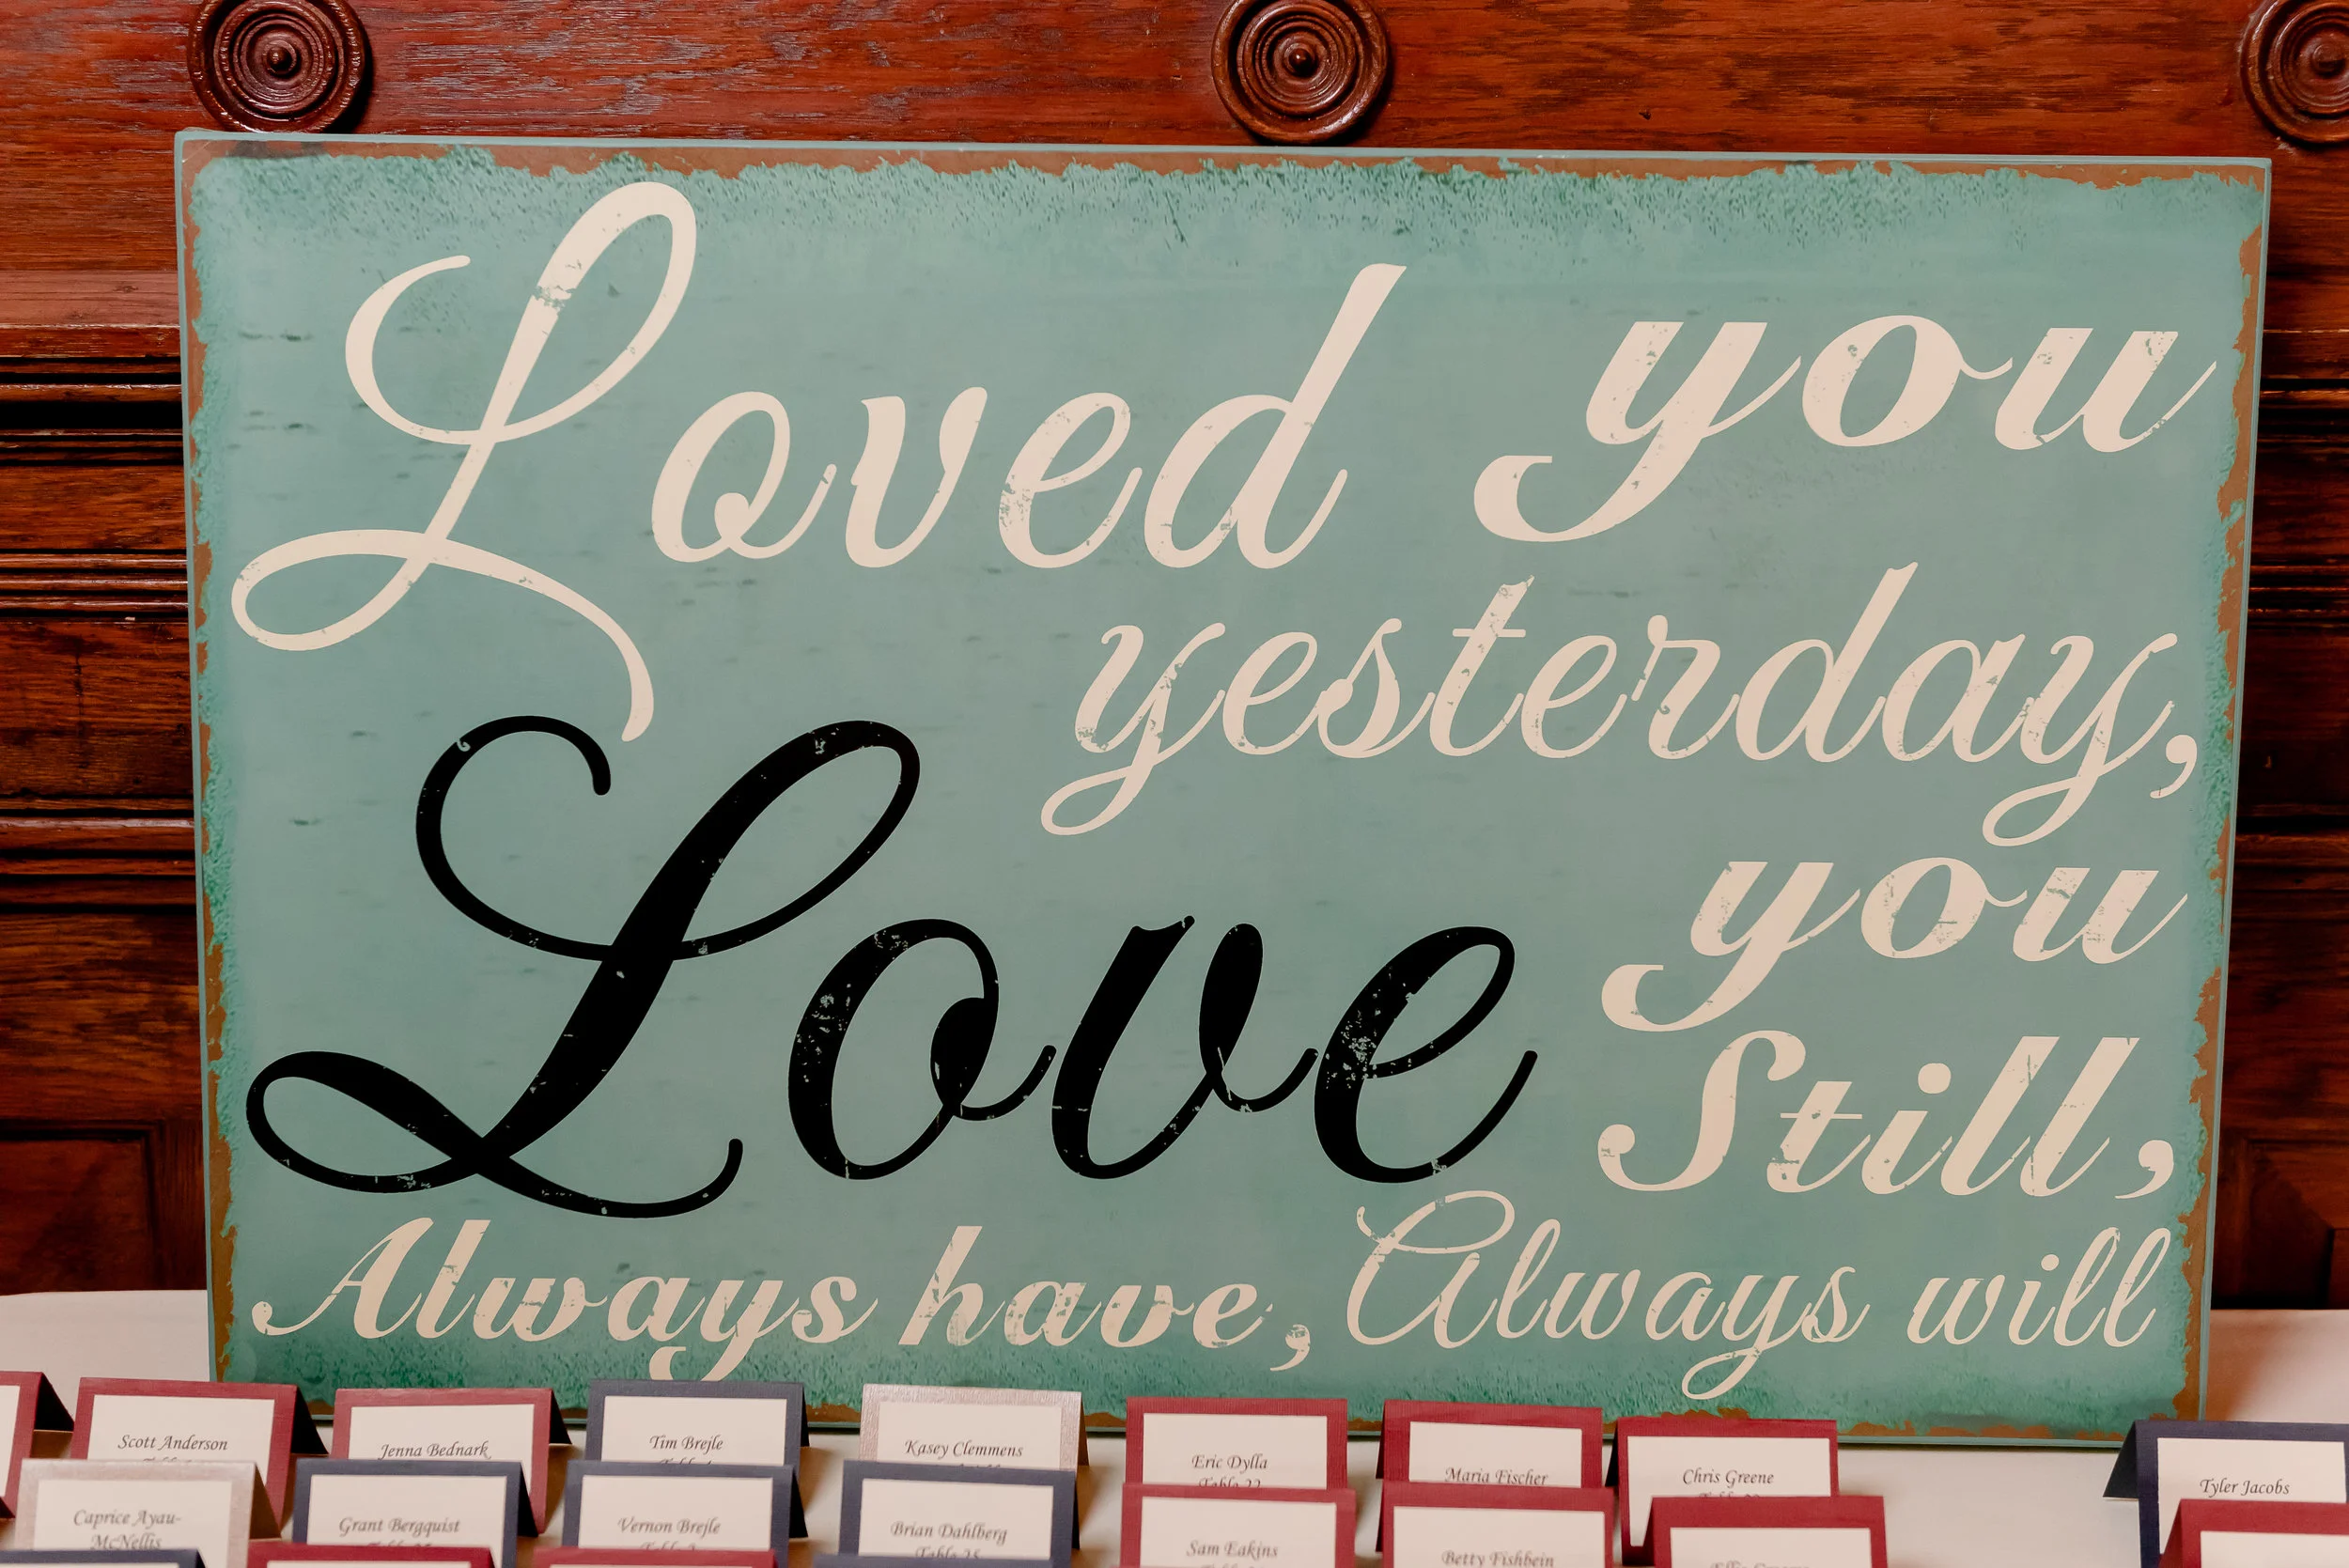 Loved you
yesterday,
Love you
Still,
Always have, Always will
Scott Anderson
Jenna Bednark
Tim Brejle
Kasey Clemmens
Eric Dylla
Table 22
Maria Fischer
Chris Greene
Tyler Jacobs
Caprice Ayau-
McNellis
Grant Bergquist
Vernon Brejle
Brian Dahlberg
Sam Eakins
Betty Fishbein